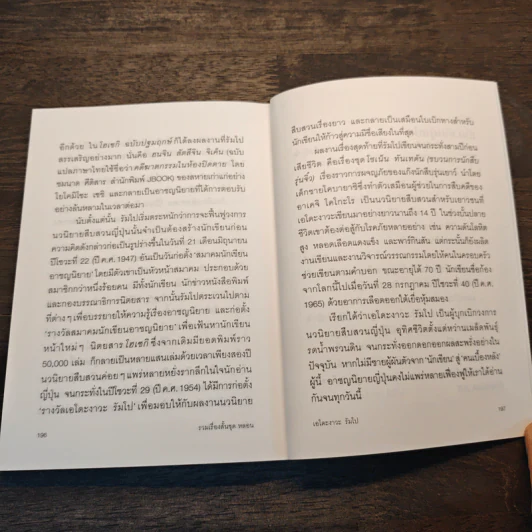 อีกด้วย ใน โฮเซกิ ฉบับปฐมฤกษ์ ก็ได้ลงผลงานที่รัมโป
สรรเสริญอย่างมาก นั่นคือ ฮนจิน ซัตสึจิน จิเค็น (ฉบับ
แปลภาษาไทยใช้ชื่อว่า คดีฆาตกรรมในห้องปิดตาย โดย
ชมนาด ศีติสาร สำนักพิมพ์ JBOOK) ของสหายเก่าแก่อย่าง
โยโคมิโซะ เซชิ และกลายเป็นอาชญนิยายที่ได้การตอบรับ
อย่างล้นหลามในเวลาต่อมา
นับตั้งแต่นั้น รัมโปเริ่มตระหนักว่าการจะฟื้นฟูวงการ
นวนิยายสืบสวนญี่ปุ่นนั้นจำเป็นต้องสร้างนักเขียนก่อน
ความคิดดังกล่าวก่อเป็นรูปร่างขึ้นในวันที่ 21 เดือนมิถุนายน
ปีโชวะที่ 22 (ปี ค.ศ.1947) อันเป็นวันก่อตั้ง ‘สมาคมนักเขียน
อาชญนิยาย’ โดยมีตัวเขาเป็นหัวหน้าสมาคม ประกอบด้วย
สมาชิกกว่าหนึ่งร้อยคน มีทั้งนักเขียน นักข่าวหนังสือพิมพ์
และกองบรรณาธิการนิตยสาร จากนั้นรัมโปตระเวนไปตาม
ที่ต่างๆ เพื่อบรรยายให้ความรู้เรื่องอาชญนิยาย และก่อตั้ง
‘รางวัลสมาคมนักเขียนอาชญนิยาย’ เพื่อเฟ้นหานักเขียน
หน้าใหม่ๆ นิตยสาร โฮเซกิ ซึ่งจากเดิมมียอดพิมพ์ราว
50,000 เล่ม ก็กลายเป็นหลายแสนเล่มด้วยเวลาเพียงสองปี
นวนิยายสืบสวนค่อยๆ แพร่หลายหยั่งรากลึกในใจนักอ่าน
ญี่ปุ่น จนกระทั่งในปีโชวะที่ 29 (ปี ค.ศ.1954) ได้มีการก่อตั้ง
‘รางวัลเอโดะงาวะ รัมโป’ เพื่อมอบให้กับผลงานนวนิยาย
196
รวมเรื่องสั้นชุด หลอน
สืบสวนเรื่องยาว และกลายเป็นเสมือนใบเบิกทางสำหรับ
นักเขียนให้ก้าวสู่ความมีชื่อเสียงในที่สุด
ผลงานเรื่องสุดท้ายที่รัมโปเขียนจนกระทั่งสามปีก่อน
เสียชีวิต คือเรื่องชุด โชเน็น ทันเทดัน (ขบวนการนักสืบ
รุ่นจิ๋ว) เรื่องราวการผจญภัยของแก๊งนักสืบรุ่นเยาว์ นำโดย
เด็กชายโคบายาชิซึ่งทำตัวเสมือนผู้ช่วยในการสืบคดีของ
อาเคจิ โคโกะโร เป็นนวนิยายสืบสวนสำหรับเยาวชนที่
เอโดะงาวะเขียนมาอย่างยาวนานถึง 14 ปี ในช่วงบั้นปลาย
ชีวิตเขาต้องต่อสู้กับโรคภัยหลายอย่าง เช่น ความดันโลหิต
สูง หลอดเลือดแดงแข็ง และพาร์กินสัน แต่กระนั้นก็ยังผลิต
งานเขียนและงานวิจารณ์วรรณกรรมโดยให้คนในครอบครัว
ช่วยเขียนตามคำบอก ขณะอายุได้ 70 ปี นักเขียนชื่อก้อง
จากโลกนี้ไปเมื่อวันที่ 28 กรกฎาคม ปีโชวะที่ 40 (ปี ค.ศ.
1965) ด้วยอาการเลือดออกใต้เยื่อหุ้มสมอง
เรียกได้ว่าเอโดะงาวะ รัมโป เป็นผู้บุกเบิกวงการ
นวนิยายสืบสวนญี่ปุ่น อุทิศชีวิตตั้งแต่หว่านเมล็ดพันธุ์
รดน้ำพรวนดิน จนกระทั่งออกดอกออกผลสะพรั่งอย่างใน
ปัจจุบัน หากไม่มีชายผู้ผันตัวจาก ‘นักเขียน’ สู่ ‘คนเบื้องหลัง’
ผู้นี้ อาชญนิยายญี่ปุ่นคงไม่แพร่หลายเฟื่องฟูให้เราได้อ่าน
กันจนทุกวันนี้
เอโดะงาวะ รัมโป
197